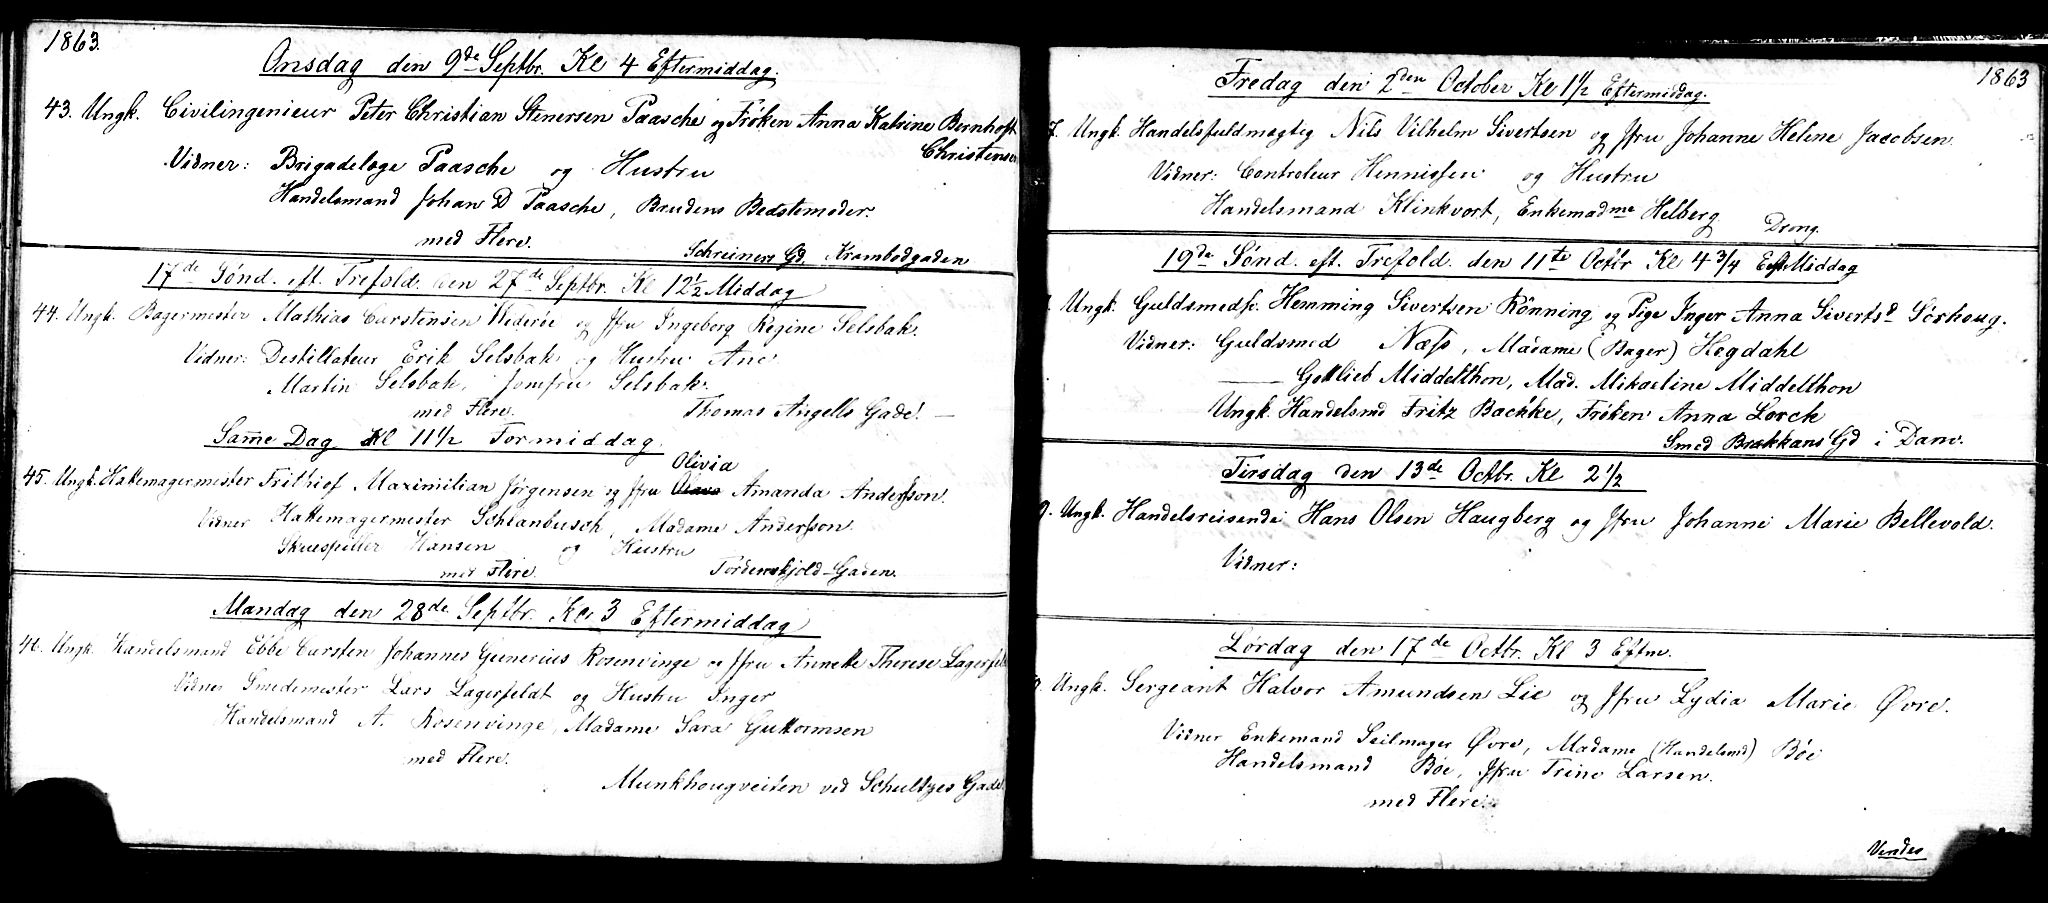 1863.
Onsdag den 9de Septbr. Kl 4 Eftermiddag.
43. Ungk. Civilingenieur Peter Christian Stenersen Paasche og Frøken Anna Katrine Bernhoft
Christensen
Vidner: Brigadelæge Paasche og Hustru
Handelsmand Johan D Paasche, Brudens Bedstemoder.
med Flere.
Schreiners Gd. Krambodgaden
17de Sønd. eft. Trefold. den 27de Septbr. Kl 12½ Middag
44. Ungk. Bagermester Mathias Carstensen Widerøe og Jfru Ingeborg Regine Selsbak.
Vidner: Destillateur Erik Selsbak og Hustru Ane
Martin Selsbak, Jomfru Selsbak.
med Flere. Thomas Angells Gade. —
Samme Dag Kl 11½ Formiddag
Olivia
45. Ungk. Hattemagermester Frithiof Maximilian Jørgensen og Jfru Amanda Andersson.
Vidner Hattemagermester Schranbusch, Madame Andersson.
Skuespiller Hansen og Hustru
med Flere. Tordenskjold-Gaden.
Mandag den 28de Septbr. Kl. 3 Eftermiddag
46. Ungk. Handelsmand Ebbe Carsten Johannes Gunerius Rosenvinge og Jfru Annette Therese Lagerfeldt
Vidner Smedemester Lars Lagerfeldt og Hustru Inger
Handelsmand A. Rosenvinge, Madame Sara Guttormsen
med Flere.
Munkhougveiten ved Schultzes Gade.
1863
Fredag den 2den October Kl 1½ Eftermiddag.
7. Ungk. Handelsfuldmægtig Nils Vilhelm Sivertsen og Jfru Johanne Helene Jacobsen.
Vidner: Controleur Hennissen og Hustru
Handelsmand Klinkvort, Enkemadme Helberg
Drong.
19de Sønd. eft. Trefold. den 11te Octbr Kl 4¾ EftMiddag
Ungk. Guldsmedsv. Hemming Sivertsen Rönning og Pige Inger Anna Sivertsd Sörhoug.
Vidner: Guldsmed Næss, Madame (Bager) Hegdahl
—— Gottlieb Middelthon, Mad. Mikaeline Middelthon
Ungk. Handelsmd Fritz Backke, Frøken Anna Lorck
Smed Brækkans Gd i Danv.
Tirsdag den 13de Octbr. Kl 2½
9. Ungk. Handelsreisende Hans Olsen Haugberg og Jfru Johanne Marie Bellevold.
Vidner:
Lørdag den 17de Octbr. Kl 3 Eftm.
Ungk. Sergeant Halvor Amundsen Lie og Jfru Lydia Marie Øvre.
Vidner Enkemand Seilmager Øvre, Madame (Handelsmd) Böe
Handelsmand Böe, Jfru Trine Larsen.
med Flere.
Vendes